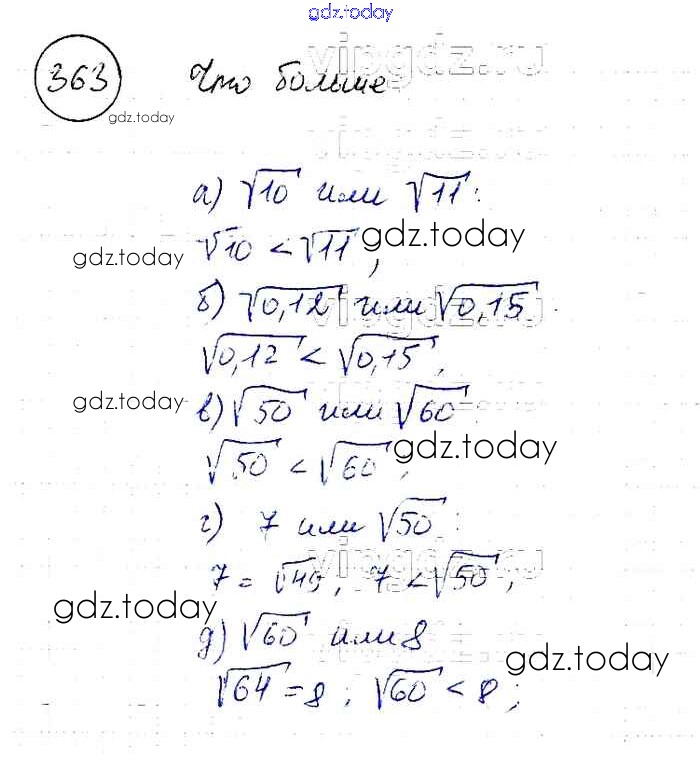 gdz.today
vipgdz.ru
363 Что больше
gdz.today
а) √10 или √11:
√10 < √11,
gdz.today
gdz.today
б) √0,12 или √0,15
vipgdz.ru
√0,12 < √0,15,
gdz.today
в) √50 или √60:
√50 < √60,
gdz.today
г) 7 или √50:
7 = √49, 7 < √50,
vipgdz.ru
gdz.today
д) √60 или 8
gdz.today
√64 = 8, √60 < 8;